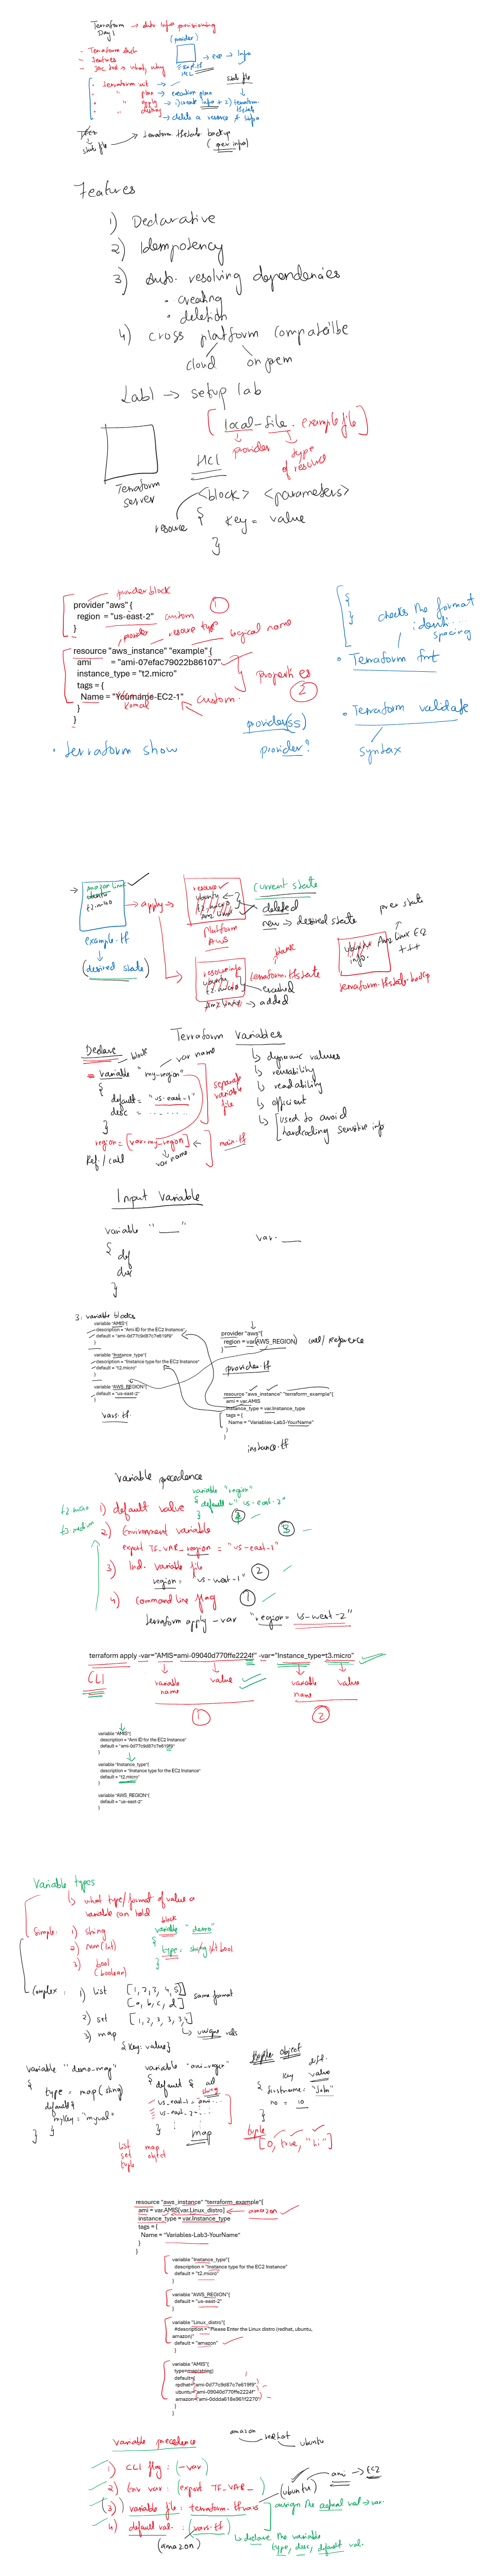 Terraform → auto infra provisioning
Day 1
(provider)
- Terraform
- features
- IAC tool → what, why
→ exp → Infra
HCL
state file
• terraform init →
• " plan → execution plan
• " apply → 1) create infra + 2) terraform.tfstate
• " destroy → delete a resource & infra
state file → terraform.tfstate.backup
(prev info)
Features
1) Declarative
2) Idempotency
3) Auto. resolving dependencies
• creating
• deletion
4) cross platform compateilbe
cloud onprem
Lab1 → setup lab
[local-file. example file]
provider
type of resource
Terraform server
HCL
<block> <parameters>
resource { key = value
}
provider block
provider "aws" {
region = "us-east-2" custom
}
1
provider resource type logical name
resource "aws_instance" "example" {
ami = "ami-07efac79022b86107"
instance_type = "t2.micro"
tags = {
Name = "Yourname-EC2-1"
Komal
custom.
}
}
properties
2
{
}
checks the format
spacing
• Terraform fmt
• Terraform validate
syntax
• terraform show
provider(ss)
provider?
→ amazon linux
ubuntu
t2.micro
example.tf
(desired state)
→ apply →
resource
ubuntu
t2.micro
amz linux
Platform
AWS
current state
deleted
new → desired state
blank
resource info
ubuntu
t2.micro
amz linux → added
terraform.tfstate
prev state
ubuntu info.
Amz Linux EC2
+++
terraform.tfstate.backup
Terraform variables
Declare
block var name
variable "my-region"
{
default = "us-east-1"
desc = ......
}
separate variable file
region = [var.my_region] ← main.tf
Ref / call
var name
↳ dynamic values
↳ reusability
↳ readability
↳ efficient
↳ used to avoid
hardcoding sensitive info
Input variable
variable "___"
{ def
des
}
var. ___
3: variable blocks
variable "AMIS"{
description = "Ami ID for the EC2 Instance"
default = "ami-0d77c9d87c7e619f9"
}
variable "Instance_type"{
description = "Instance type for the EC2 Instance"
default = "t2.micro"
}
variable "AWS_REGION"{
default = "us-east-2"
}
vars.tf.
provider "aws"{
region = var(AWS_REGION)
}
call / reference
provider.tf
resource "aws_instance" "terraform_example"{
ami = var.AMIS
instance_type = var.Instance_type
tags = {
Name = "Variables-Lab3-YourName"
}
}
instance.tf
Variable precedence
t2.micro 1) default value
variable "region"
{ default = "us-east-2"
}
4
t3.medium 2) Environment variable
3
export TF_VAR_region = "us-east-1"
3) Ind. variable file
region = us-west-1"
2
4) command line flag
1
terraform apply -var "region = us-west-2"
terraform apply -var="AMIS=ami-09040d770ffe2224f" -var="Instance_type=t3.micro"
CLI
variable name value
variable name value
1
2
variable "AMIS"{
description = "Ami ID for the EC2 Instance"
default = "ami-0d77c9d87c7e619f9"
}
variable "Instance_type"{
description = "Instance type for the EC2 Instance"
default = "t2.micro"
}
variable "AWS_REGION"{
default = "us-east-2"
}
Variable types
↳ what type/format of value a
variable can hold
Simple: 1) string
2) num (int)
3) bool
(boolean)
block
variable "demo"
{
type = string/int bool
}
Complex: 1) list [1, 2, 3, 4, 5]
[a, b, c, d]
same format
2) set [1, 2, 3, 3, 3, 4]
↳ unique vals
3) map
{key: value}
variable "demo_map"
{
type = map(string)
default {
mykey = "myval"
} }
variable "ami_region"
{ default {
string
us-east-1 = ami...
us-east-2 = ...
}
map
object
diff.
key value
{ firstname: "John"
no = 10
}
tuple
[0, true, "hi"]
list map
set object
tuple
resource "aws_instance" "terraform_example"{
ami = var.AMIS[var.Linux_distro] ← amazon
instance_type = var.Instance_type
tags = {
Name = "Variables-Lab3-YourName"
}
}
variable "Instance_type"{
description = "Instance type for the EC2 Instance"
default = "t2.micro"
}
variable "AWS_REGION"{
default = "us-east-2"
}
variable "Linux_distro"{
#description = "Please Enter the Linux distro (redhat, ubuntu,
amazon)"
default = "amazon"
}
variable "AMIS"{
type=map(string)
default={
redhat="ami-0d77c9d87c7e619f9"
ubuntu="ami-09040d770ffe2224f"
amazon="ami-0ddda618e961f2270"
}
}
Variable precedence
amazon redhat ubuntu
1) CLI flag : (-var)
2) Env var : (export TF_VAR_)
3) variable file : terraform.tfvars
4) default val. : (vars.tf)
(amazon)
(ubuntu)
ami → EC2
assign the actual val → var.
↳ declare the variable
type, desc, default val.